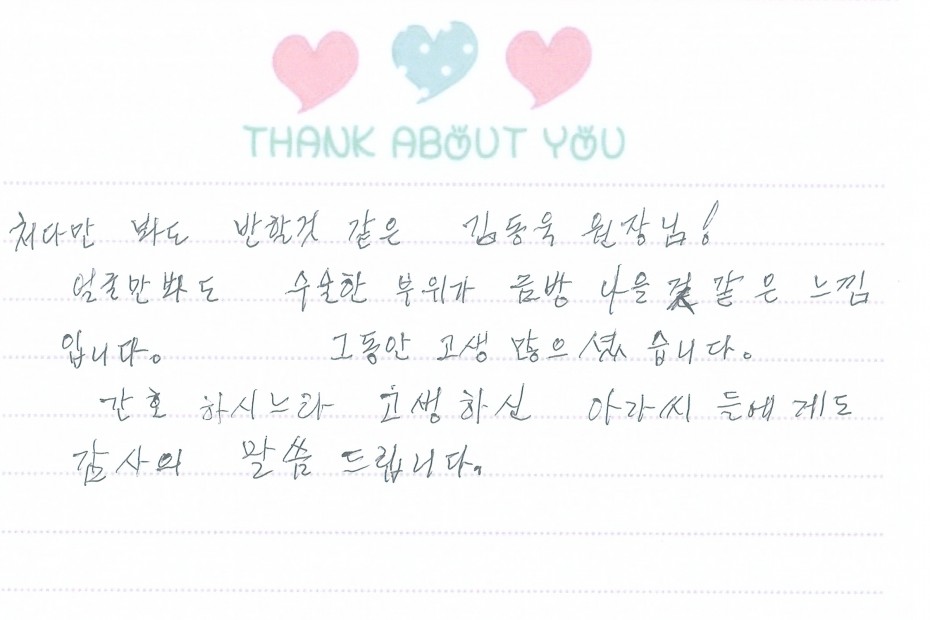 THANK ABOUT YOU
처다만 봐도 반할것 같은 김동욱 원장님!
얼굴만봐도 수술한 부위가 금방 나을 것 같은 느낌
입니다. 그동안 고생 많으셨습니다.
간호 하시느라 고생하신 아가씨 들에게도
감사의 말씀 드립니다.